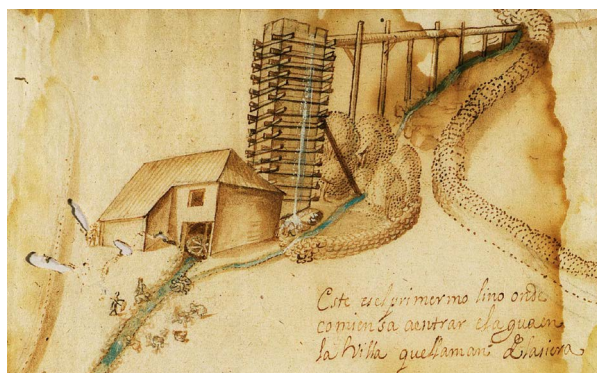 Este es el primer mo lino onde
comiensa aentrar el agua en
la Villa que llaman